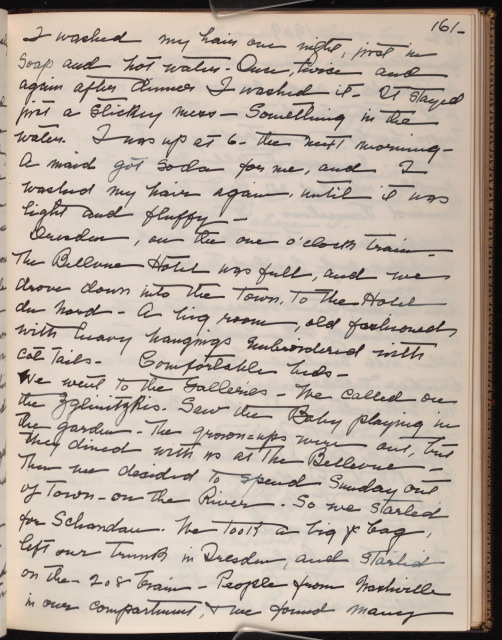 161-
I washed my hair one night, just in
Soap and hot water - Once, twice and
again after dinner I washed it - It stayed
just a slickey mess - Something in the
water. I was up at 6 - the next morning -
A maid got Soda for me, and I
washed my hair again, until it was
light and fluffy -
Dresden, on the one o'clock train -
The Bellevue Hotel was full, and we
drove down into the Town, To the Hotel
du Nord - A big room, old fashioned
with heavy hangings embroidered with
cat tails - Comfortable beds -
We went to the Galleries - We called on
the Saw the Baby playing in
the garden - The grown-ups were out, but
they dined with us at The Bellevue -
Then we decided to spend Sunday out
of Town - on the River. So we started
for Schandau. We took a big bag,
left our trunk in Dresden, and started
on the 2 08 train - People from Nashville
in our compartment, & we found many